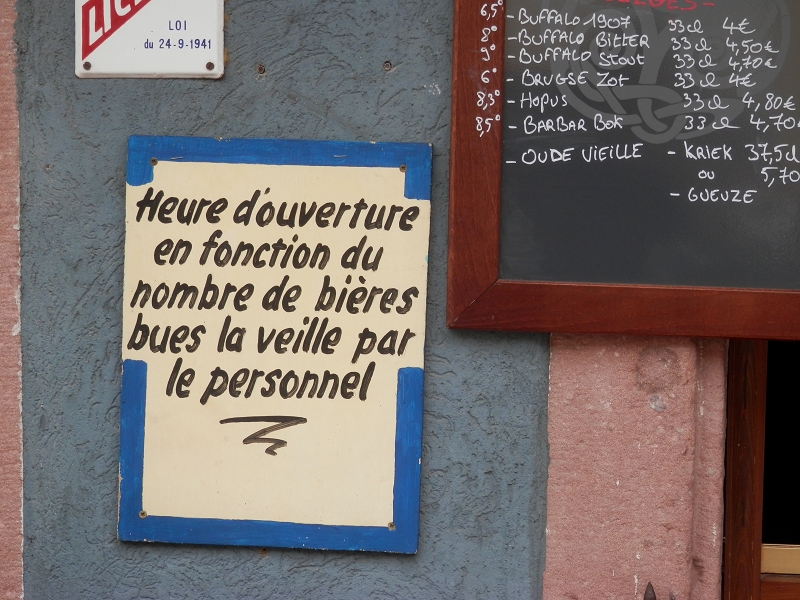 LOI
du 24-9-1941
Heure d'ouverture
en fonction du
nombre de bières
bues la veille par
le personnel
6,5° - BUFFALO 1907 33cl 4€
8° - BUFFALO BITTER 33cl 4,50€
9° - BUFFALO STOUT 33cl 4,70€
6° - BRUGSE ZOT 33cl 4€
8,3° - HOPUS 33cl 4,80€
8,5° - BARBAR BOK 33cl 4,70
- OUDE VIEILLE - KRIEK 37,5cl
ou 5,70
- GUEUZE